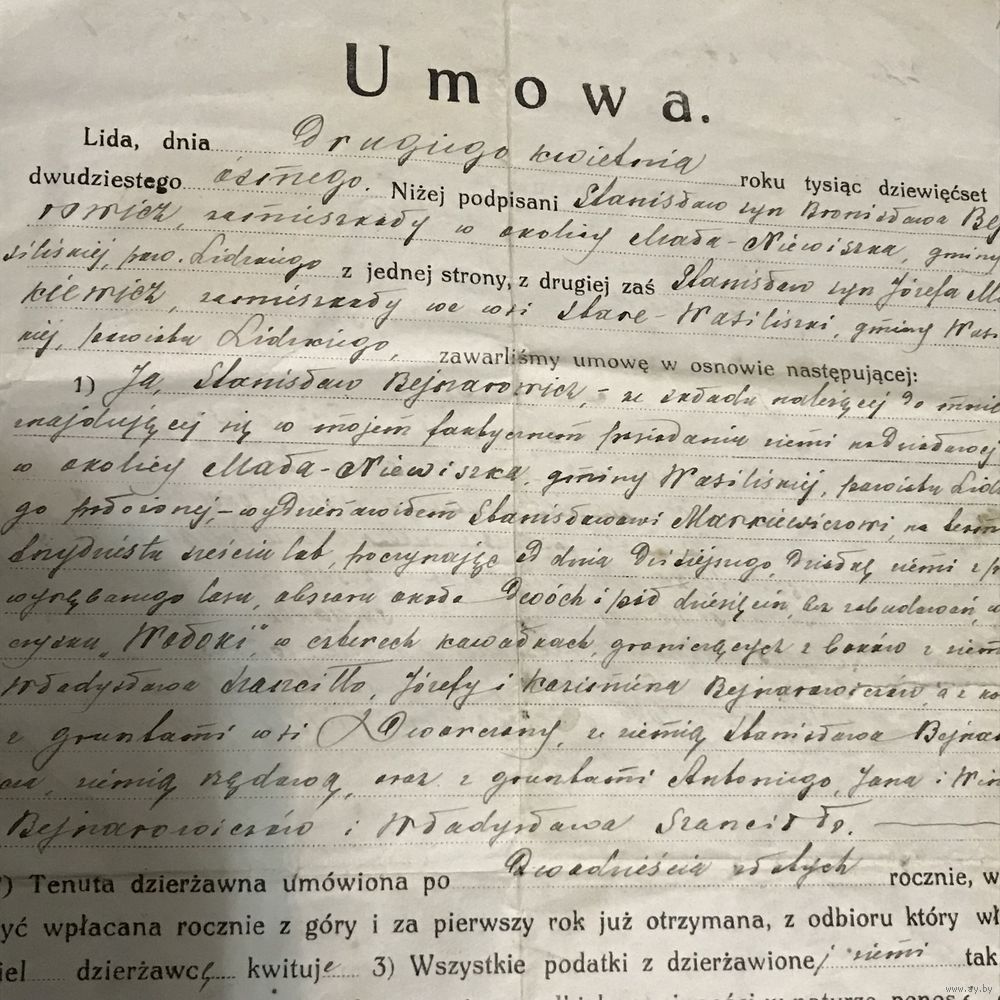 Umowa.
Lida, dnia Drugiego kwietnia roku tysiąc dziewięćset
dwudziestego ósmego. Niżej podpisani Stanisław syn Bronisława Bej
rowicz, zamieszkały w okolicy Mała-Niewiszka, gminy
siliskiej, pow. Lidzkiego z jednej strony, z drugiej zaś Stanisław syn Józefa Ma
kiewicz, zamieszkały we wsi Stare-Wasiliszki, gminy Wasi
kiej, powiatu Lidzkiego, zawarliśmy umowę w osnowie następującej:
1) Ja, Stanisław Bejnarowicz, - ze składu należącej do mnie
znajdującej się w mojem faktycznem posiadaniu ziemi nadziałowej
w okolicy Mała-Niewiszka, gminy Wasiliskiej, powiatu Lidz
go położonej, - wydzierżawiłem Stanisławowi Markiewiczowi, na term
trzydziestu sześciu lat, poczynając od dnia dzisiejszego, działkę ziemi z p
wyrębanego lasu, obszaru około Dwóch i pół dziesięcin, bez zabudowań, w
czysku "Wołoki" w czterech kawałkach, graniczących z boków z ziem
Władysława Szanciłło, Józefy i Kazimierza Bejnarowiczów, a z ko
z gruntami wsi Dworczany, ze ziemią Stanisława Bejnar
cza, ziemią rządową, oraz z gruntami Antoniego, Jana i Win
Bejnarowiczów i Władysława Szanciłło.
) Tenuta dzierżawna umówiona po Dwadzieścia złotych rocznie, w
yć wpłacana rocznie z góry i za pierwszy rok już otrzymana, z odbioru który wł
iel dzierżawcę kwituje 3) Wszystkie podatki z dzierżawionej ziemi tak
www.ay.by